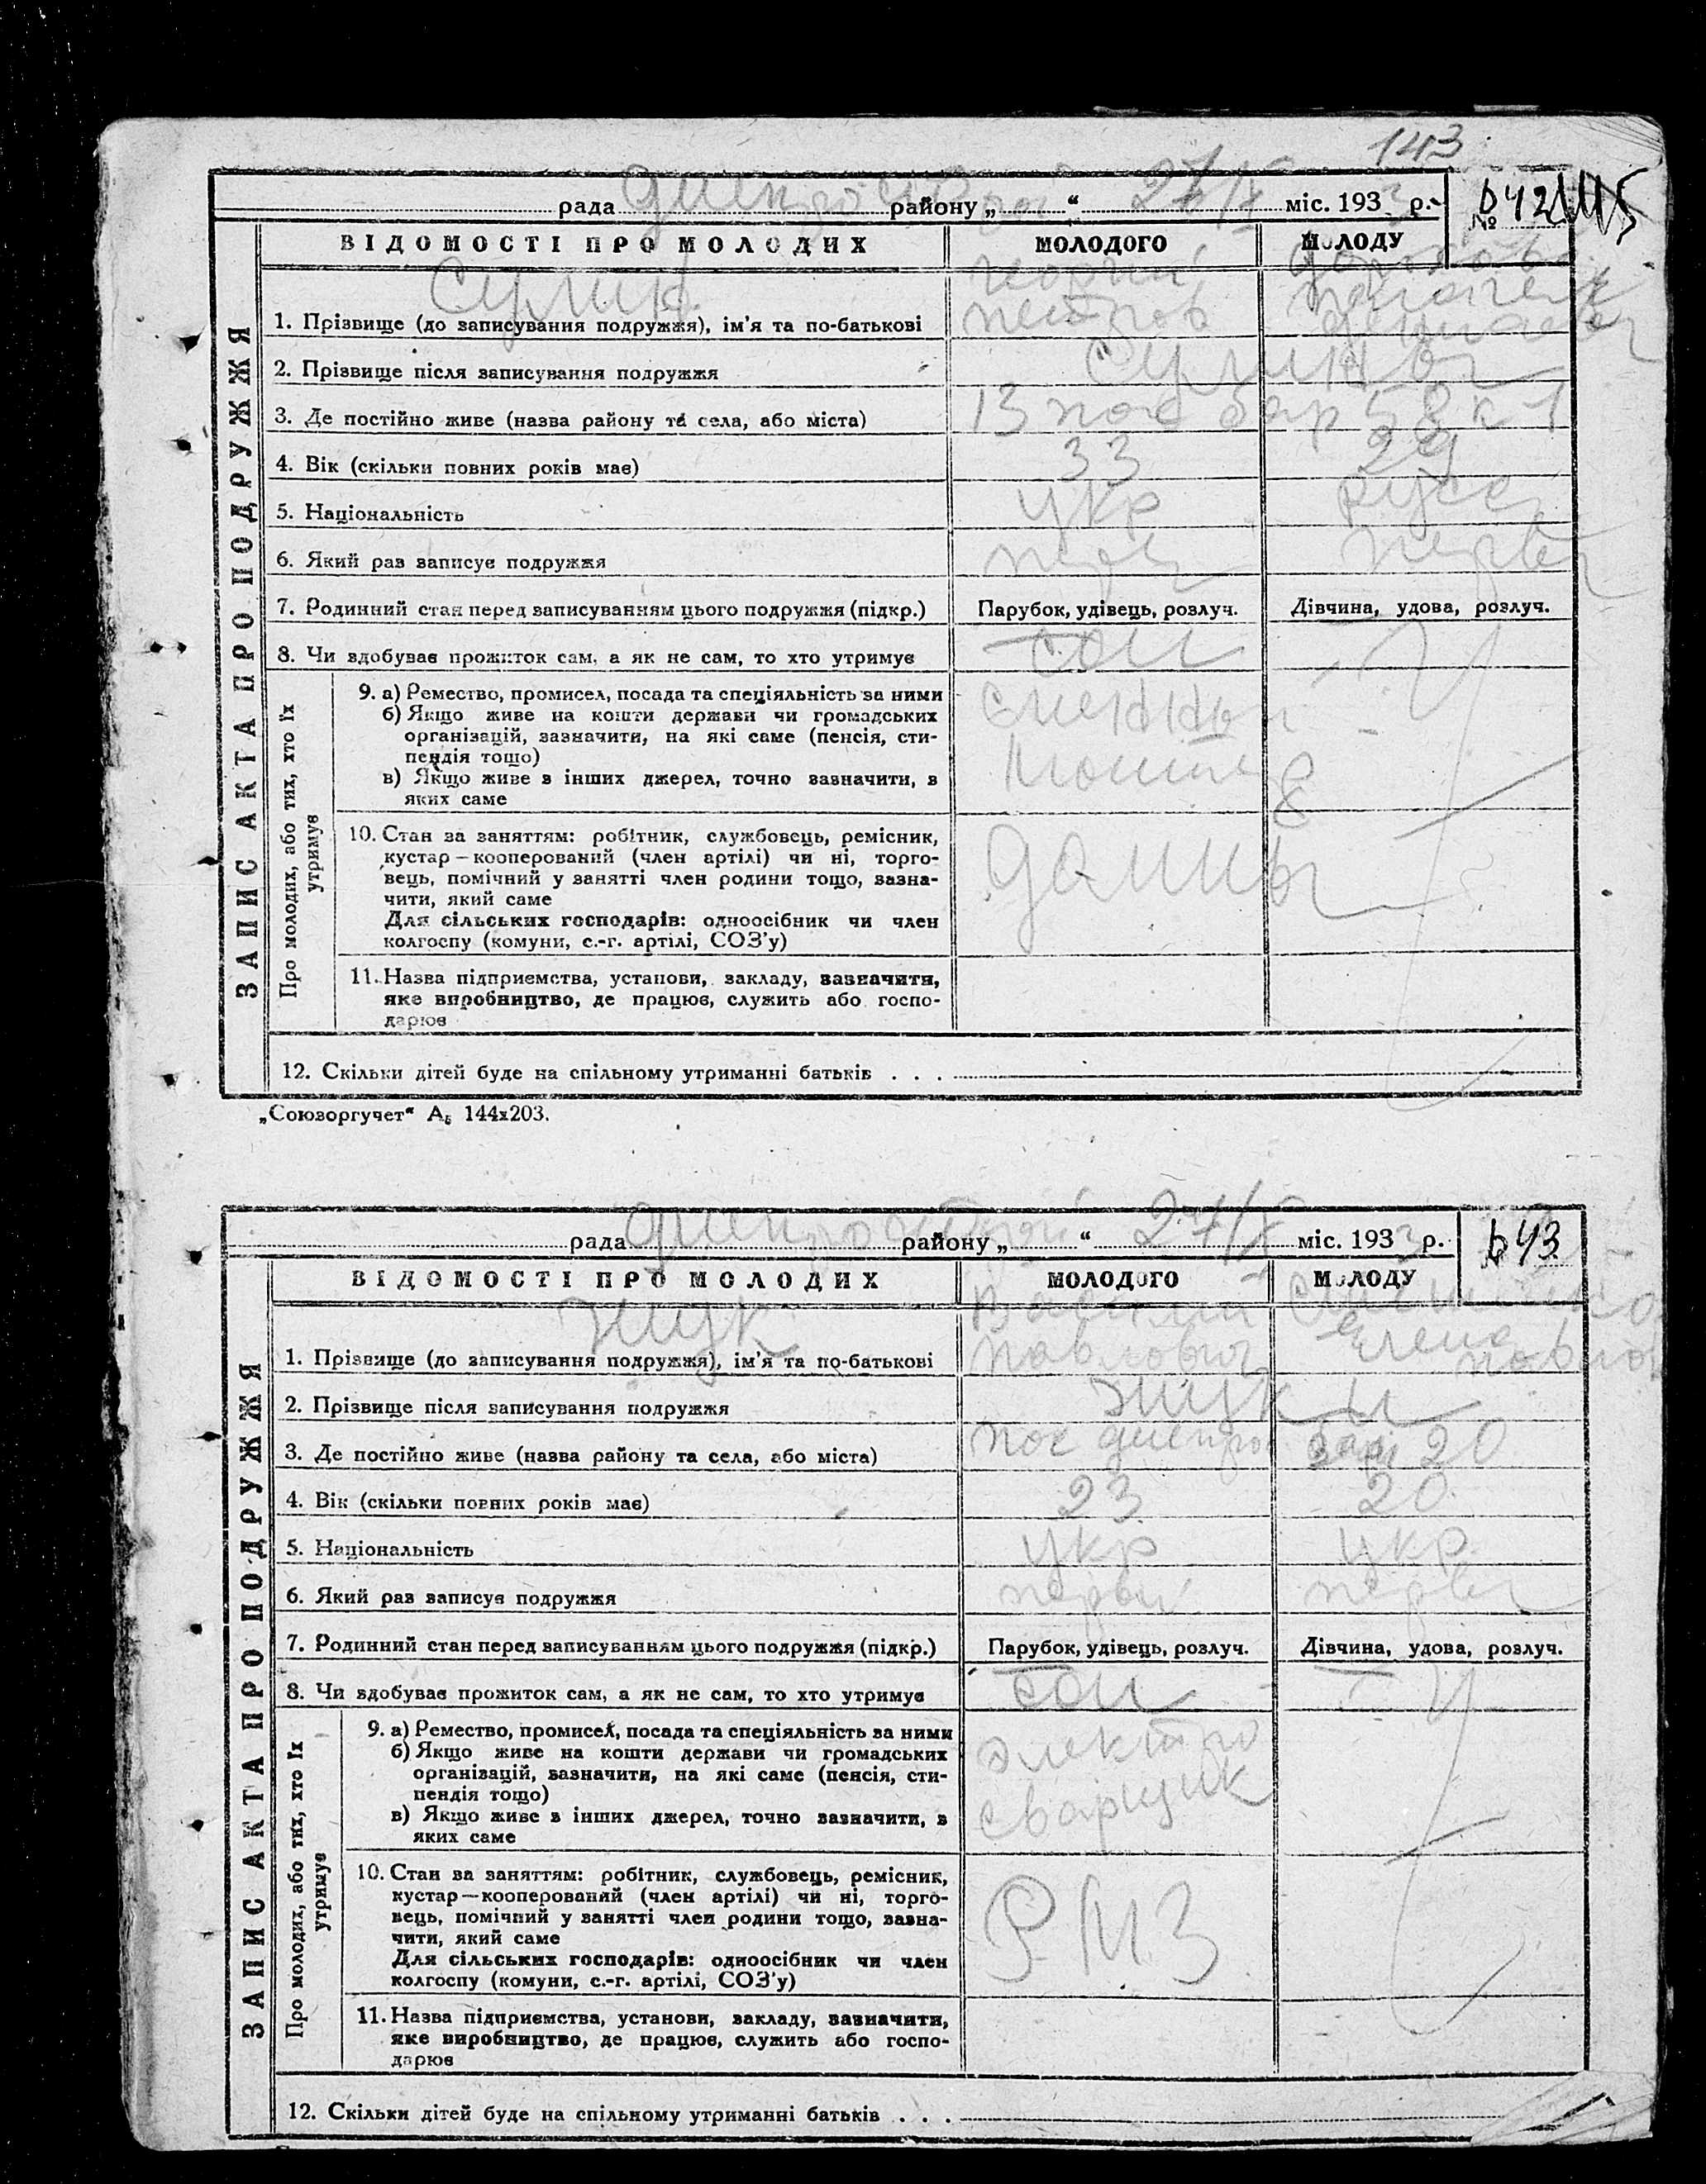 143
рада Днепрострой району „ “ 27/V міс. 1933 р. № 642
ВІДОМОСТІ ПРО МОЛОДИХ МОЛОДОГО МОЛОДУ
ЗАПИС АКТА ПРО ПОДРУЖЖЯ
1. Прізвище (до записування подружжя), ім’я та по-батькові
2. Прізвище після записування подружжя
3. Де постійно живе (назва району та села, або міста) 13 пос бар 58 к 1
4. Вік (скільки повних років має) 33 29
5. Національність укр русс
6. Який раз записує подружжя
7. Родинний стан перед записуванням цього подружжя (підкр.) Парубок, удівець, розлуч. Дівчина, удова, розлуч.
8. Чи здобуває прожиток сам, а як не сам, то хто утримує сам
Про молодих, або тих, хто їх утримує
9. а) Ремество, промисел, посада та спеціяльність за ними
б) Якщо живе на кошти держави чи громадських
організацій, зазначити, на які саме (пенсія, сти-
пендія тощо)
в) Якщо живе з інших джерел, точно зазначити, з
яких саме
10. Стан за заняттям: робітник, службовець, ремісник,
кустар — кооперований (член артілі) чи ні, торго-
вець, помічний у занятті член родини тощо, зазна-
чити, який саме
Для сільських господарів: одноосібник чи член
колгоспу (комуни, с.-г. артілі, СОЗ’у)
11. Назва підприємства, установи, закладу, зазначити,
яке виробництво, де працює, служить або госпо-
дарює
12. Скільки дітей буде на спільному утриманні батьків . . .
„Союзоргучет“ А₅ 144х203.
рада Днепрострой району „ “ 27/V міс. 1933 р. 643
ВІДОМОСТІ ПРО МОЛОДИХ МОЛОДОГО МОЛОДУ
ЗАПИС АКТА ПРО ПОДРУЖЖЯ
Жук Василий
1. Прізвище (до записування подружжя), ім’я та по-батькові Павлович Елена Павлов
2. Прізвище після записування подружжя Жук и
3. Де постійно живе (назва району та села, або міста) пос днепро бар 20
4. Вік (скільки повних років має) 23 20
5. Національність укр укр
6. Який раз записує подружжя первый
7. Родинний стан перед записуванням цього подружжя (підкр.) Парубок, удівець, розлуч. Дівчина, удова, розлуч.
8. Чи здобуває прожиток сам, а як не сам, то хто утримує сам
Про молодих, або тих, хто їх утримує
9. а) Ремество, промисел, посада та спеціяльність за ними электро
б) Якщо живе на кошти держави чи громадських
організацій, зазначити, на які саме (пенсія, сти-
пендія тощо) сварщик
в) Якщо живе з інших джерел, точно зазначити, з
яких саме
10. Стан за заняттям: робітник, службовець, ремісник,
кустар — кооперований (член артілі) чи ні, торго-
вець, помічний у занятті член родини тощо, зазна- РМЗ
чити, який саме
Для сільських господарів: одноосібник чи член
колгоспу (комуни, с.-г. артілі, СОЗ’у)
11. Назва підприємства, установи, закладу, зазначити,
яке виробництво, де працює, служить або госпо-
дарює
12. Скільки дітей буде на спільному утриманні батьків . . .